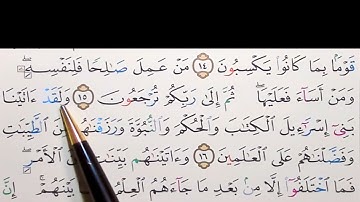 قَوْمًۢا بِمَا كَانُوا۟ يَكْسِبُونَ ١٤ مَنْ عَمِلَ صَٰلِحًا فَلِنَفْسِهِۦ
وَمَنْ أَسَآءَ فَعَلَيْهَا ثُمَّ إِلَىٰ رَبِّكُمْ تُرْجَعُونَ ١٥ وَلَقَدْ ءَاتَيْنَا
بَنِىٓ إِسْرَٰٓءِيلَ ٱلْكِتَٰبَ وَٱلْحُكْمَ وَٱلنُّبُوَّةَ وَرَزَقْنَٰهُم مِّنَ ٱلطَّيِّبَٰتِ
وَفَضَّلْنَٰهُمْ عَلَى ٱلْعَٰلَمِينَ ١٦ وَءَاتَيْنَٰهُم بَيِّنَٰتٍ مِّنَ ٱلْأَمْرِ
فَمَا ٱخْتَلَفُوٓا۟ إِلَّا مِنۢ بَعْدِ مَا جَآءَهُمُ ٱلْعِلْمُ بَيْنَهُمْ إِنَّ